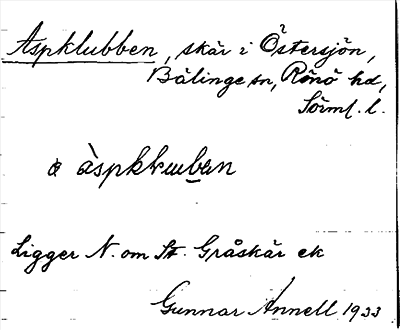 Aspklubben, skär i Östersjön,
Bälinge sn, Rönö hd,
Sörml. l.
a àspkkɯban
Ligger N. om St. Gråskär ek
Gunnar Annell 1933